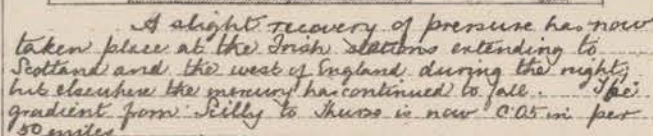 A slight recovery of pressure has now
taken place at the Irish stations extending to
Scotland and the west of England during the night;
but elsewhere the mercury has continued to fall. The
gradient from Scilly to Thurso is now 0.05 in per
50 miles